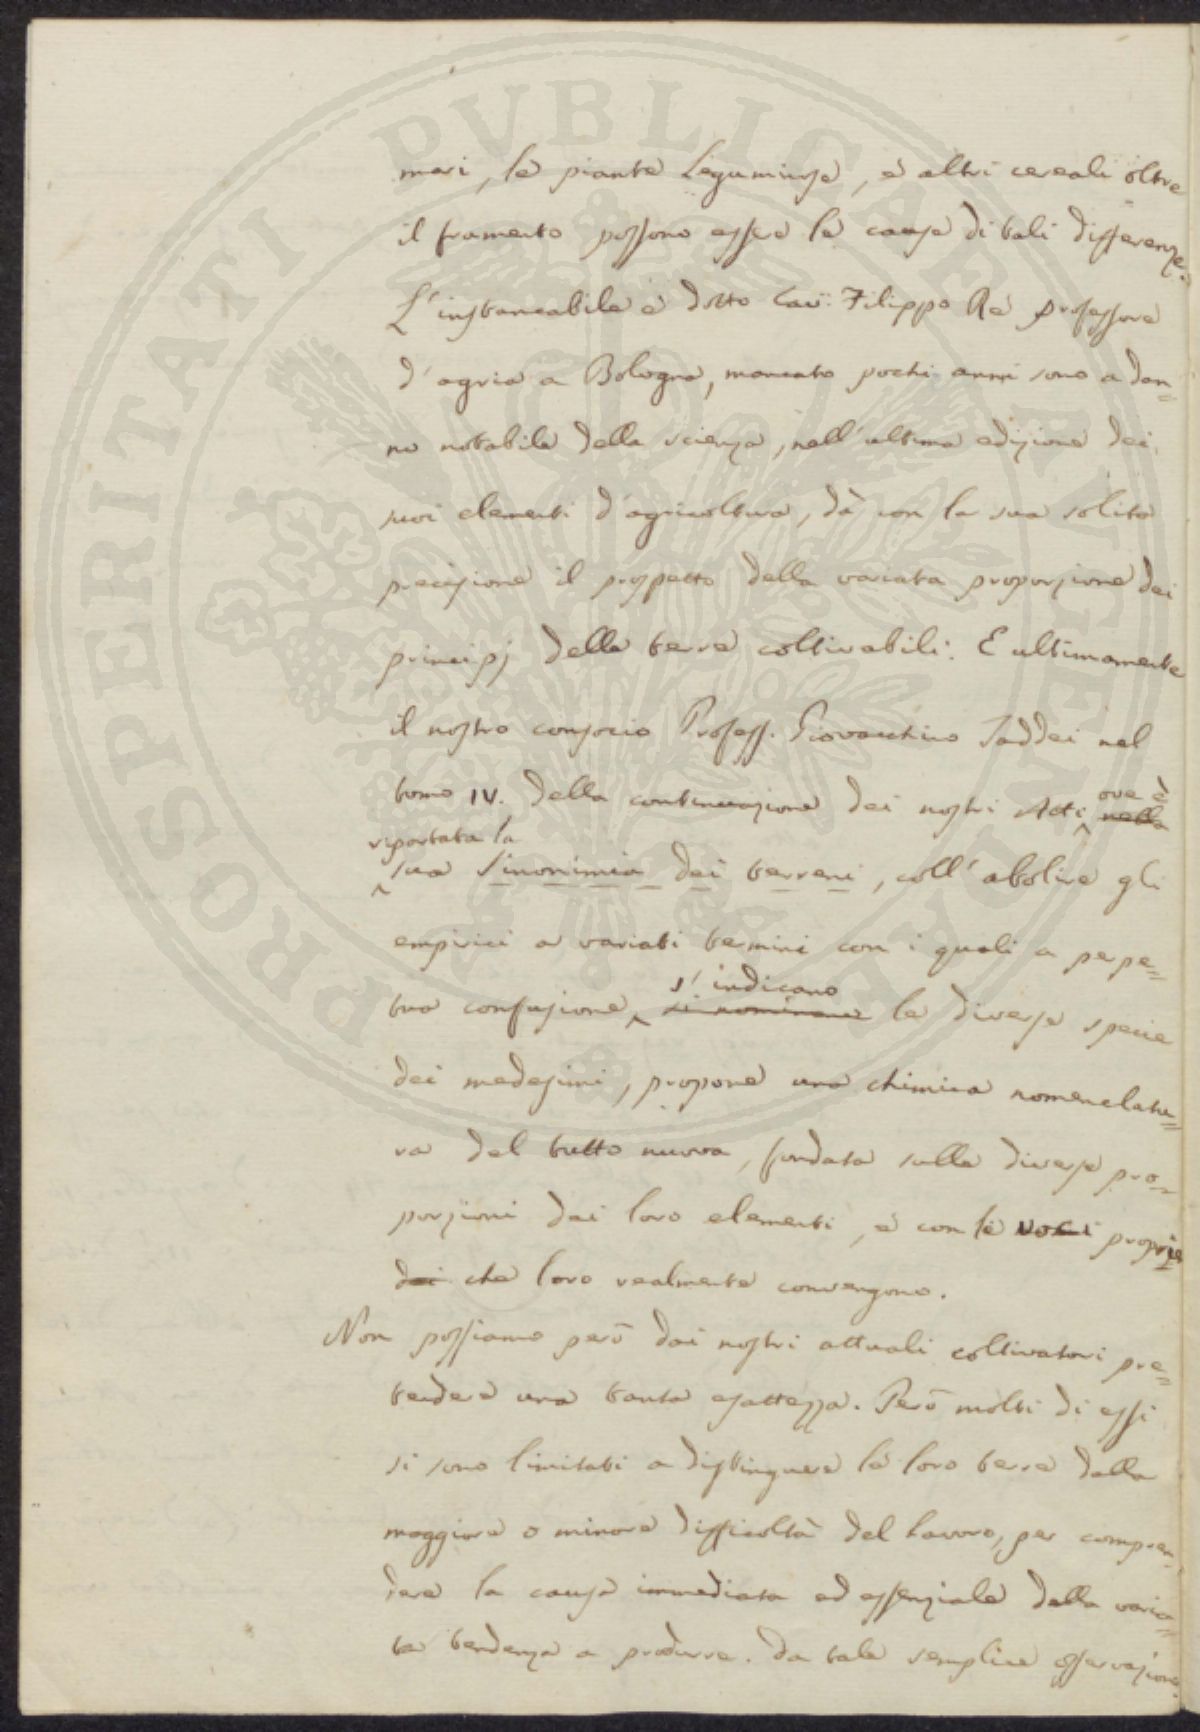 mari, le piante leguminose, e altri cereali oltre
il frumento possono essere la causa di tali differenze.
L'instancabile e dotto Cav. Filippo Re professore
d'agria a Bologna, mancato pochi anni sono a dan=
no notabile della scienza, nell'ultima edizione dei
suoi elementi d'agricoltura, dà con la sua solita
precisione il prospetto della variata proporzione dei
principj delle terre coltivabili. E ultimamente
il nostro consocio Profess. Giovacchino Taddei nel
tomo IV. della continuazione dei nostri Atti ove è nella
riportata la
sua Sinonimia dei terreni, coll'abolire gli
empirici e variati termini con i quali a perpe=
s'indicano
tua confusione si nominano le diverse specie
dei medesimi, propone una chimica nomenclatu=
ra del tutto nuova, fondata sulle diverse pro=
porzioni dei loro elementi, e con le voci proprie
dei che loro realmente convengono.
Non possiamo però dai nostri attuali coltivatori pre=
tendere una tanta esattezza. Però molti di essi
si sono limitati a distinguere le loro terre dalla
maggiore o minore difficoltà del lavoro, per compren=
dere la causa immediata ed essenziale della varia=
ta tendenza a produrre. Da tale semplice osservazione
PROSPERITATI PVBLICAE AVGENDAE